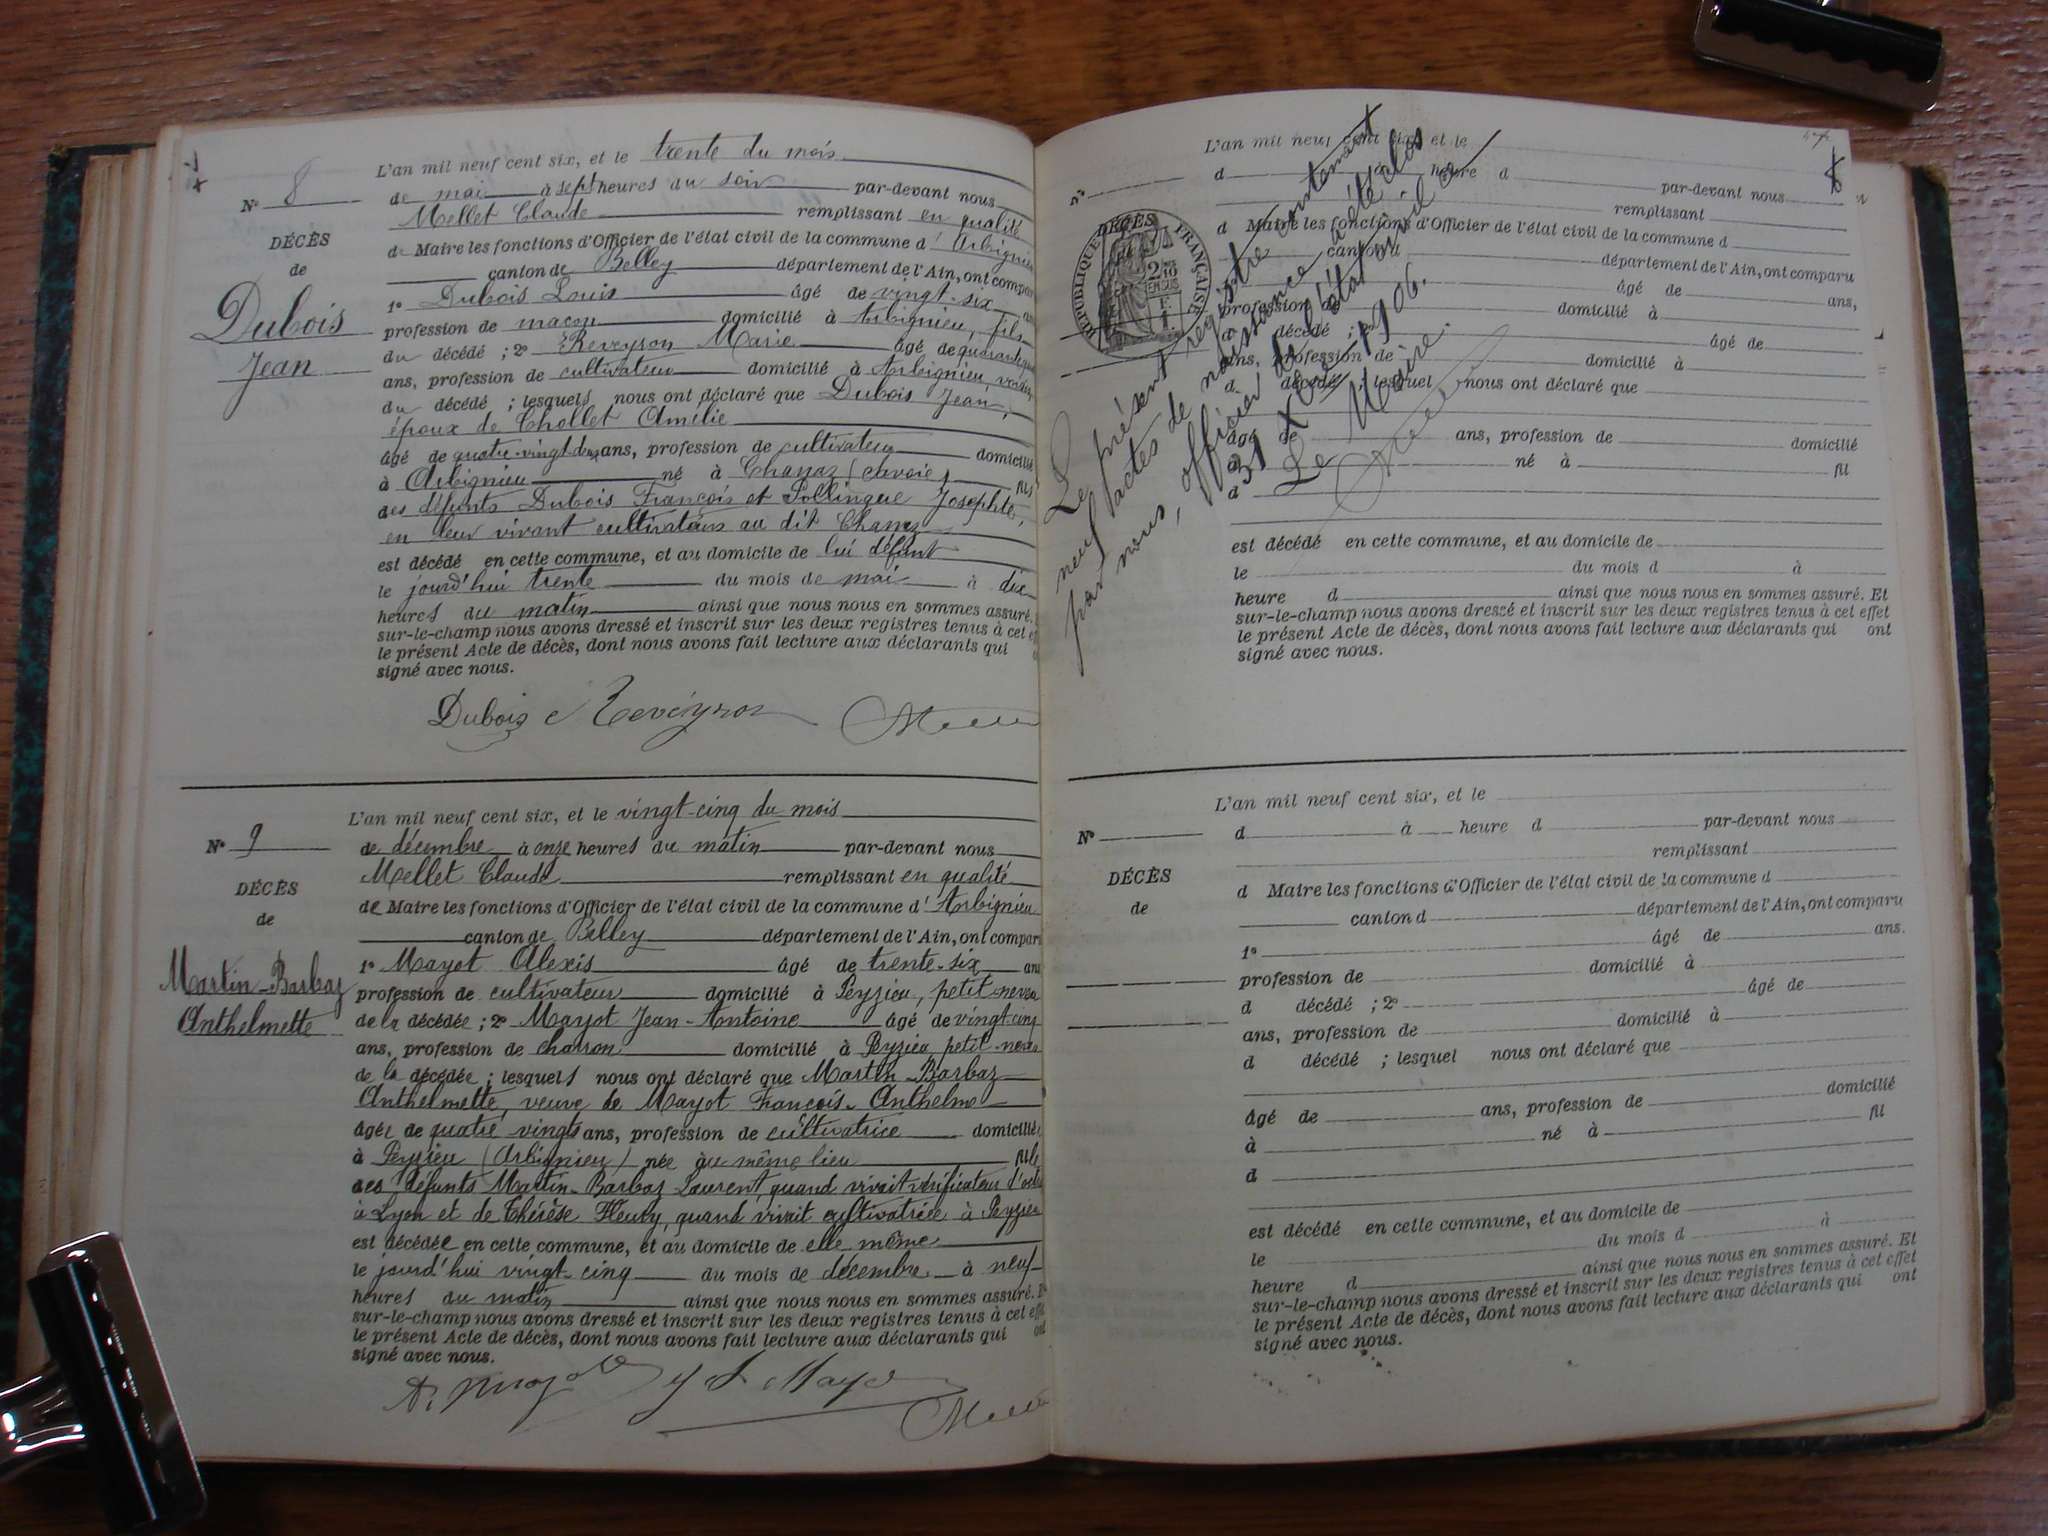 L'an mil neuf cent six, et le trente du mois
N° 8 de mai à sept heures du soir par-devant nous
Mellet Claude remplissant en qualité
DÉCÈS
de Maire les fonctions d'Officier de l'état civil de la commune d'Arbignieu
de
canton de Belley département de l'Ain, ont compar
Dubois
1° Dubois Louis âgé de vingt-six
profession de maçon domicilié à Arbignieu, fils
Jean
du décédé ; 2° Reveyron Marie âgé de quarante
ans, profession de cultivateur domicilié à Arbignieu, voisin
du décédé ; lesquels nous ont déclaré que Dubois Jean,
époux de Chollet Amélie
âgé de quatre-vingt-deux ans, profession de cultivateur domicilié
à Arbignieu né à Chanaz (Savoie) fils
des défunts Dubois François et Josephte,
en leur vivant cultivateurs au dit Chanaz
est décédé en cette commune, et au domicile de lui défunt
le jourd'hui trente du mois de mai à dix
heures du matin ainsi que nous nous en sommes assuré.
sur-le-champ nous avons dressé et inscrit sur les deux registres tenus à cet ef
le présent Acte de décès, dont nous avons fait lecture aux déclarants qui
signé avec nous.
Dubois Reveyron
L'an mil neuf cent six, et le vingt-cinq du mois
N° 9 de décembre à onze heures du matin par-devant nous
Mellet Claude remplissant en qualité
DÉCÈS
de Maire les fonctions d'Officier de l'état civil de la commune d'Arbignieu
de
canton de Belley département de l'Ain, ont compar
1° Mayot Alexis âgé de trente-six ans
Martin-Barbaz
profession de cultivateur domicilié à Peyzieu, petit-neveu
Anthelmette
de la décédée ; 2° Mayot Jean-Antoine âgé de vingt-cinq
ans, profession de charron domicilié à Peyzieu petit-neveu
de la décédée ; lesquels nous ont déclaré que Martin-Barbaz
Anthelmette, veuve de Mayot François-Anthelme
âgée de quatre vingts ans, profession de cultivatrice domiciliée
à Peyzieu (Arbignieu) née au même lieu fille
des défunts Martin-Barbaz Laurent, quand vivait vérificateur d'octr
à Lyon et de Thérèse Fleury, quand vivait cultivatrice à Peyzieu
est décédée en cette commune, et au domicile de elle même
le jourd'hui vingt-cinq du mois de décembre à neuf
heures du matin ainsi que nous nous en sommes assuré. E
sur-le-champ nous avons dressé et inscrit sur les deux registres tenus à cet effe
le présent Acte de décès, dont nous avons fait lecture aux déclarants qui ont
signé avec nous.
L'an mil neuf cent six, et le
N° d à heure d par-devant nous
remplissant
DÉCÈS
d Maire les fonctions d'Officier de l'état civil de la commune d
canton d département de l'Ain, ont comparu
RÉPUBLIQUE FRANÇAISE
2/10 EN SUS
âgé de ans,
profession de domicilié à
d décédé ; 2° âgé de
ans, profession de domicilié à
d décédé ; lesquel nous ont déclaré que
âgé de ans, profession de domicilié
à né à fil
d
est décédé en cette commune, et au domicile de
le du mois d à
heure d ainsi que nous nous en sommes assuré. Et
sur-le-champ nous avons dressé et inscrit sur les deux registres tenus à cet effet
le présent Acte de décès, dont nous avons fait lecture aux déclarants qui ont
signé avec nous.
Le présent registre contenant
neuf actes de naissance a été clos
par nous, officier de l'état civil ce
31 Xbre 1906.
Le Maire.
L'an mil neuf cent six, et le
N° d à heure d par-devant nous
remplissant
DÉCÈS
d Maire les fonctions d'Officier de l'état civil de la commune d
de
canton d département de l'Ain, ont comparu
1° âgé de ans.
profession de domicilié à
d décédé ; 2° âgé de
ans, profession de domicilié à
d décédé ; lesquel nous ont déclaré que
âgé de ans, profession de domicilié
à né à fil
d
est décédé en cette commune, et au domicile de
le du mois d à
heure d ainsi que nous nous en sommes assuré. Et
sur-le-champ nous avons dressé et inscrit sur les deux registres tenus à cet effet
le présent Acte de décès, dont nous avons fait lecture aux déclarants qui ont
signé avec nous.